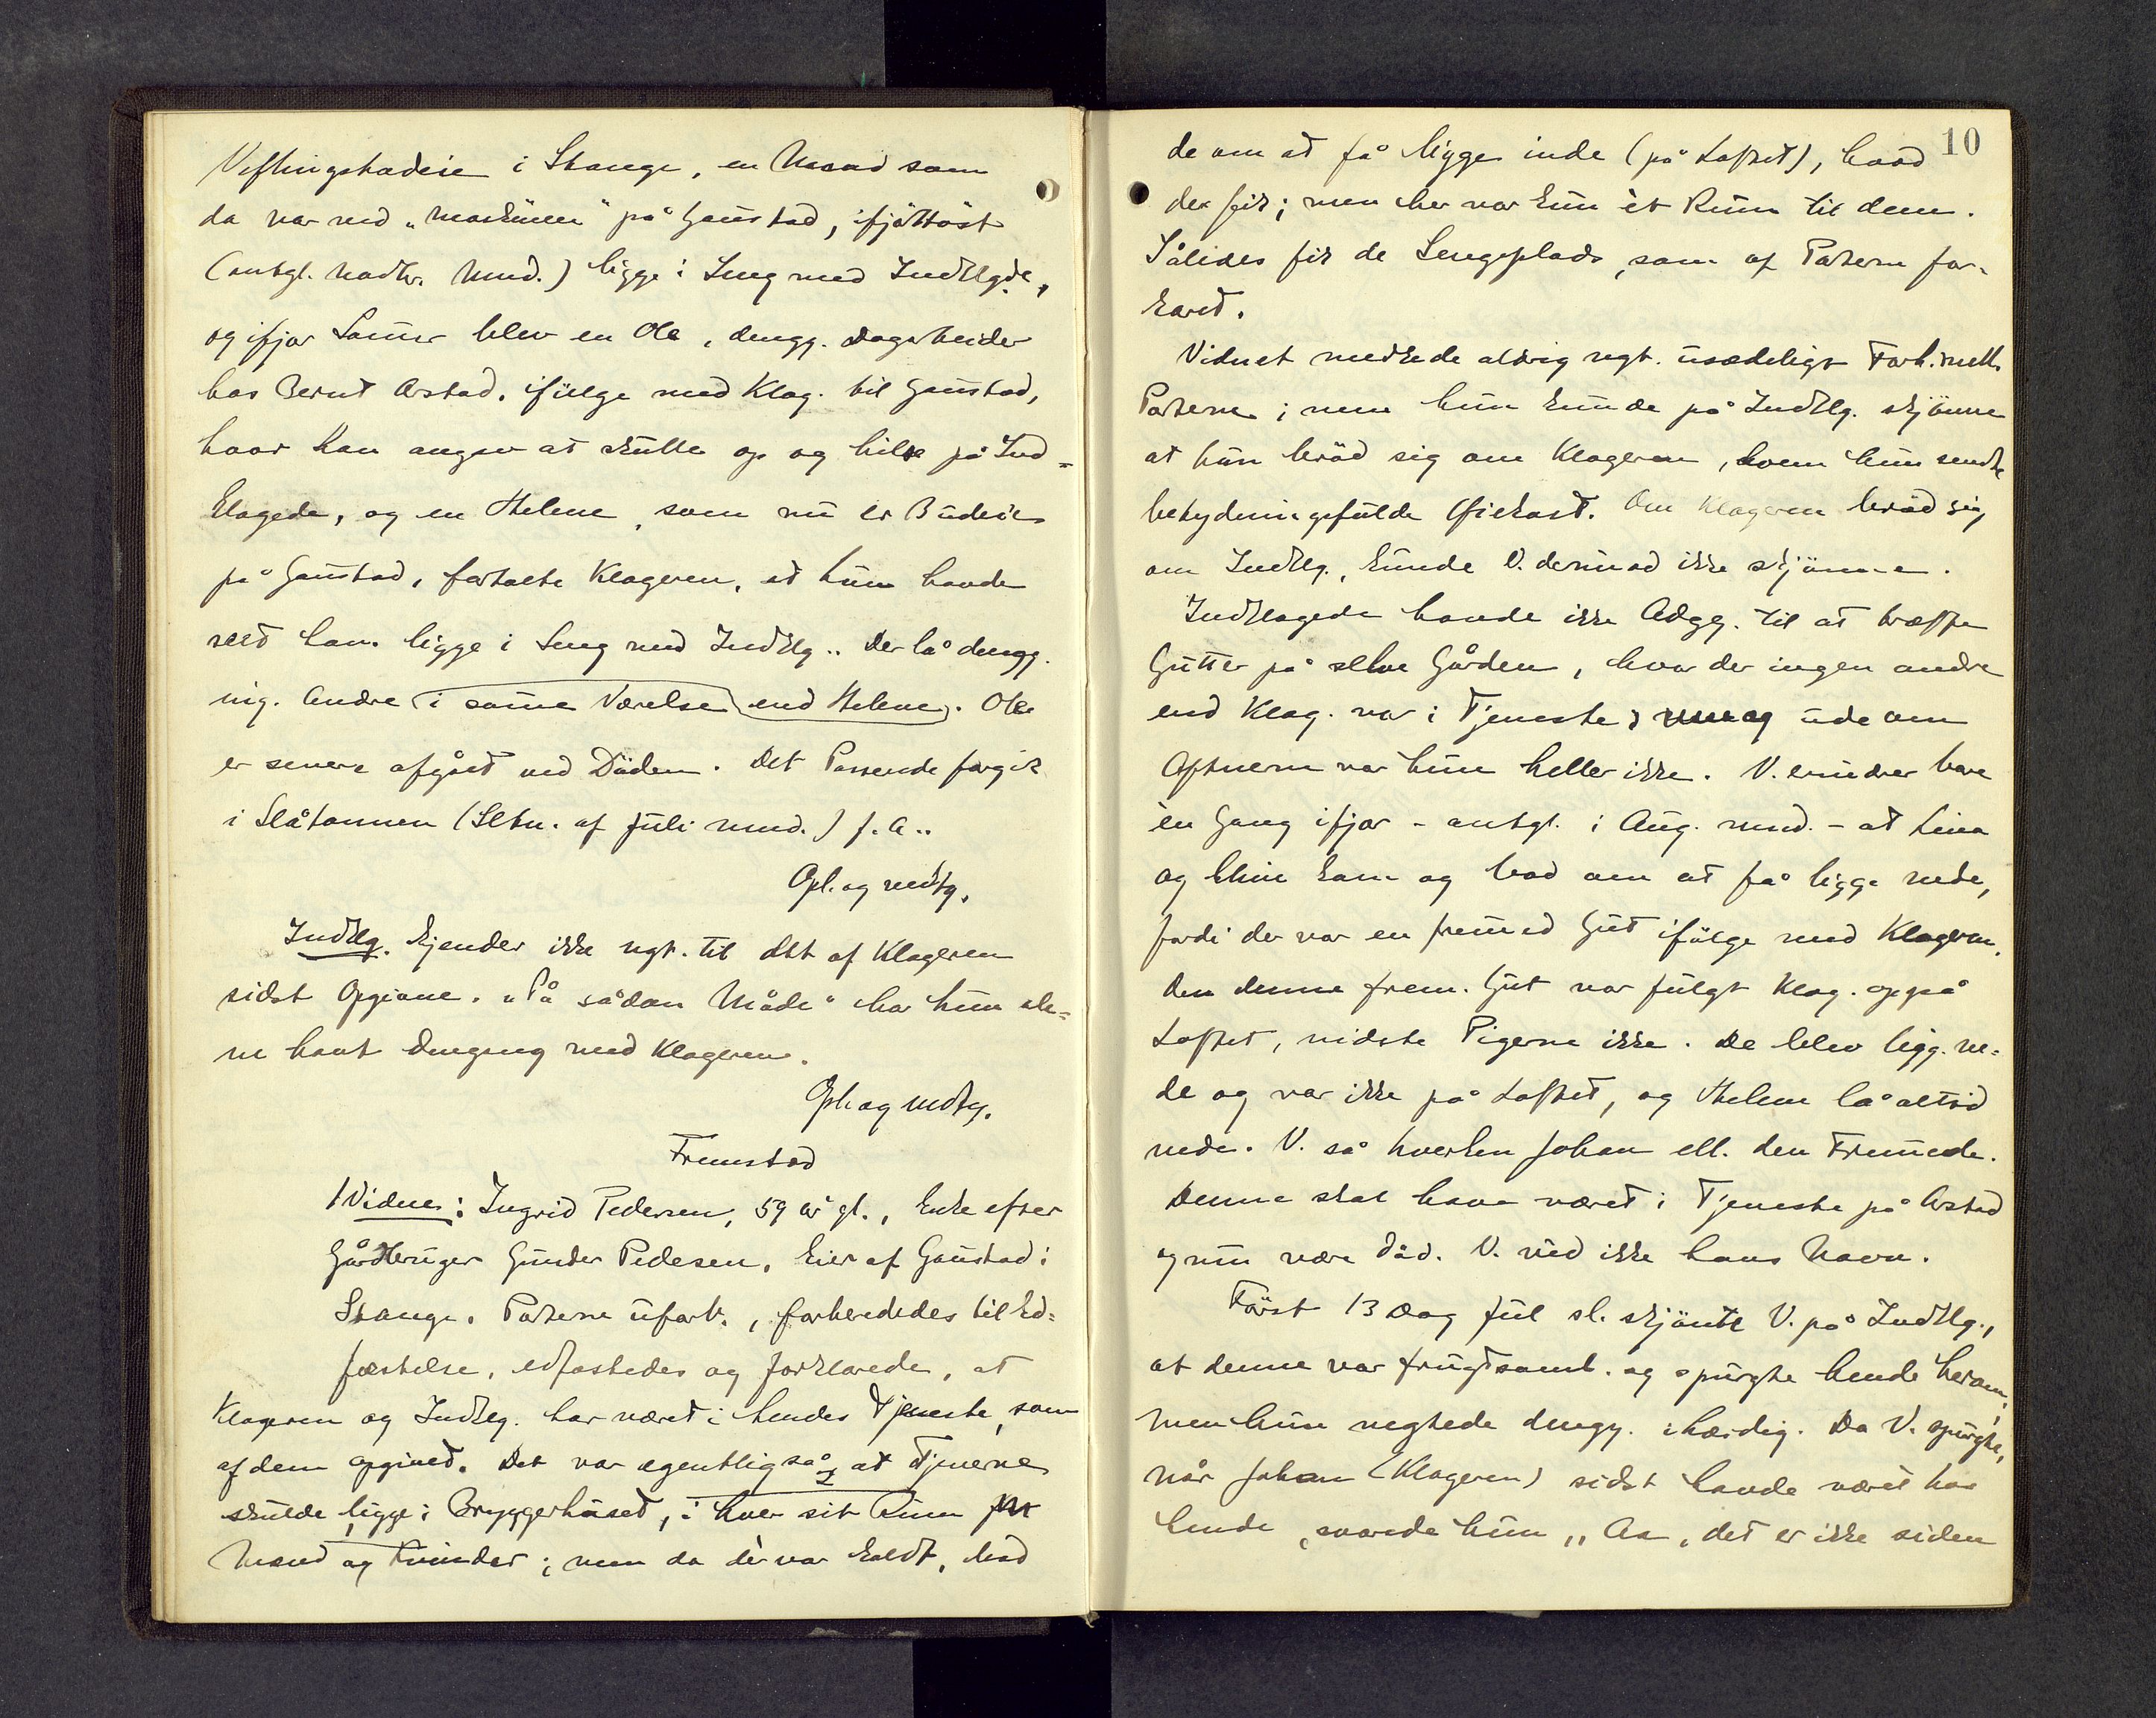 i Stange, en Mand som
da var ved "maskinen" på Gaustad, ifjorhöst
(antgl. Novbr. Mnd.) ligge i Seng med Indklgde,
og ifjor Somer blev en Ole, dengg. Dagarbeider
hos Bernt Arstad, ifölge med Klag. til Gaustad,
hvor han angav at skulle op og hilse på Ind=
klagede, og en Helene, som nu er Budeie
på Gaustad, fortalte Klageren, at hun havde
seet ham ligge i Seng med Indklg.. Der lå dengg.
ing. Andre i same Værelse end Helene. Ole
er senere afgået ved Döden. Det Passerede foregik
i Slåtonnen (Slutn. af Juli mnd.) f. A..
Opl. og vedtg.
Indklg. kjender ikke ngt. til det af Klageren
sidst Opgivne. "På sådan Måde" har hun ale=
ne havt Omgang med Klageren.
Opl. og vedtg.
Fremstod
1 Vidne: Ingrid Pedersen, 59 år gl., Enke efter
Gårdbruger Gunder Pedersen, Eier af Gaustad i
Stange. Parterne uforb., forberededes til Ed=
fæstelse, edfæstedes og forklarede, at
Klageren og Indklg. har været i hendes Tjeneste, som
af dem opgivet. Det var egentlig så, at Tjenerne
skulde ligge i Bryggerhuset, i hver sit Rum
Mænd og Kvinder; men da dèr var koldt, bad
10
de om at få ligge inde (på Loftet), hvad
de fik; men her var kun èt Rum til dem.
Således fik de Sengeplads, som af Parterne for=
klaret.
Vidnet mærkede aldrig ngt. usædeligt Forh. mell.
Parterne; men hun kunde på Indklg. skjönne
at hun bröd sig om Klageren, hvem hun sendte
betydningsfulde Öiekast. Om Klageren bröd sig
om Indklg., kunde V. derimod ikke skjönne.
Indklagede havde ikke Adgg. til at træffe
Gutter på selve Gården, hvor der ingen andre
end Klag. var i Tjeneste, og ude om
Aftnerne var hun heller ikke. V. erindrer bare
èn Gang ifjor - antgl. i Aug. mnd. - at Lina
og kom og bad om at få ligge nede,
fordi der var en fremed Gut ifölge med Klageren.
Om denne frem. Gut var fulgt Klag. op på
Loftet, vidste Pigerne ikke. De blev ligg. ne=
de og var ikke på Loftet, og Helene lå altid
nede. V. så hverken Johan ell. den Fremede.
Denne skal have været i Tjeneste på Arstad
og nu være död. V. ved ikke hans Navn.
Först 13 Dag Jul sl. skjönte V. på Indklg.,
at denne var frugtsoml. og spurgte hende herom,
men hun negtede dengg. ihærdig. Da V. spurgte,
når Johan (Klageren) sidst havde været hos
hende, svarede hun "Aa, det er ikke siden